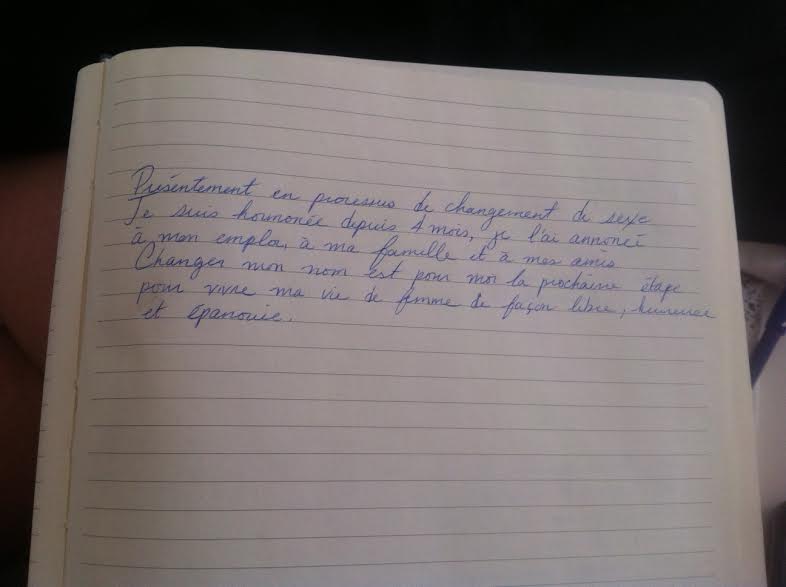 Présentement en processus de changement de sexe
Je suis hormonée depuis 4 mois, je l'ai annoncé
à mon emploi, à ma famille et à mes amis
Changer mon nom est pour moi la prochaine étape
pour vivre ma vie de femme de façon libre, heureuse
et épanouie.